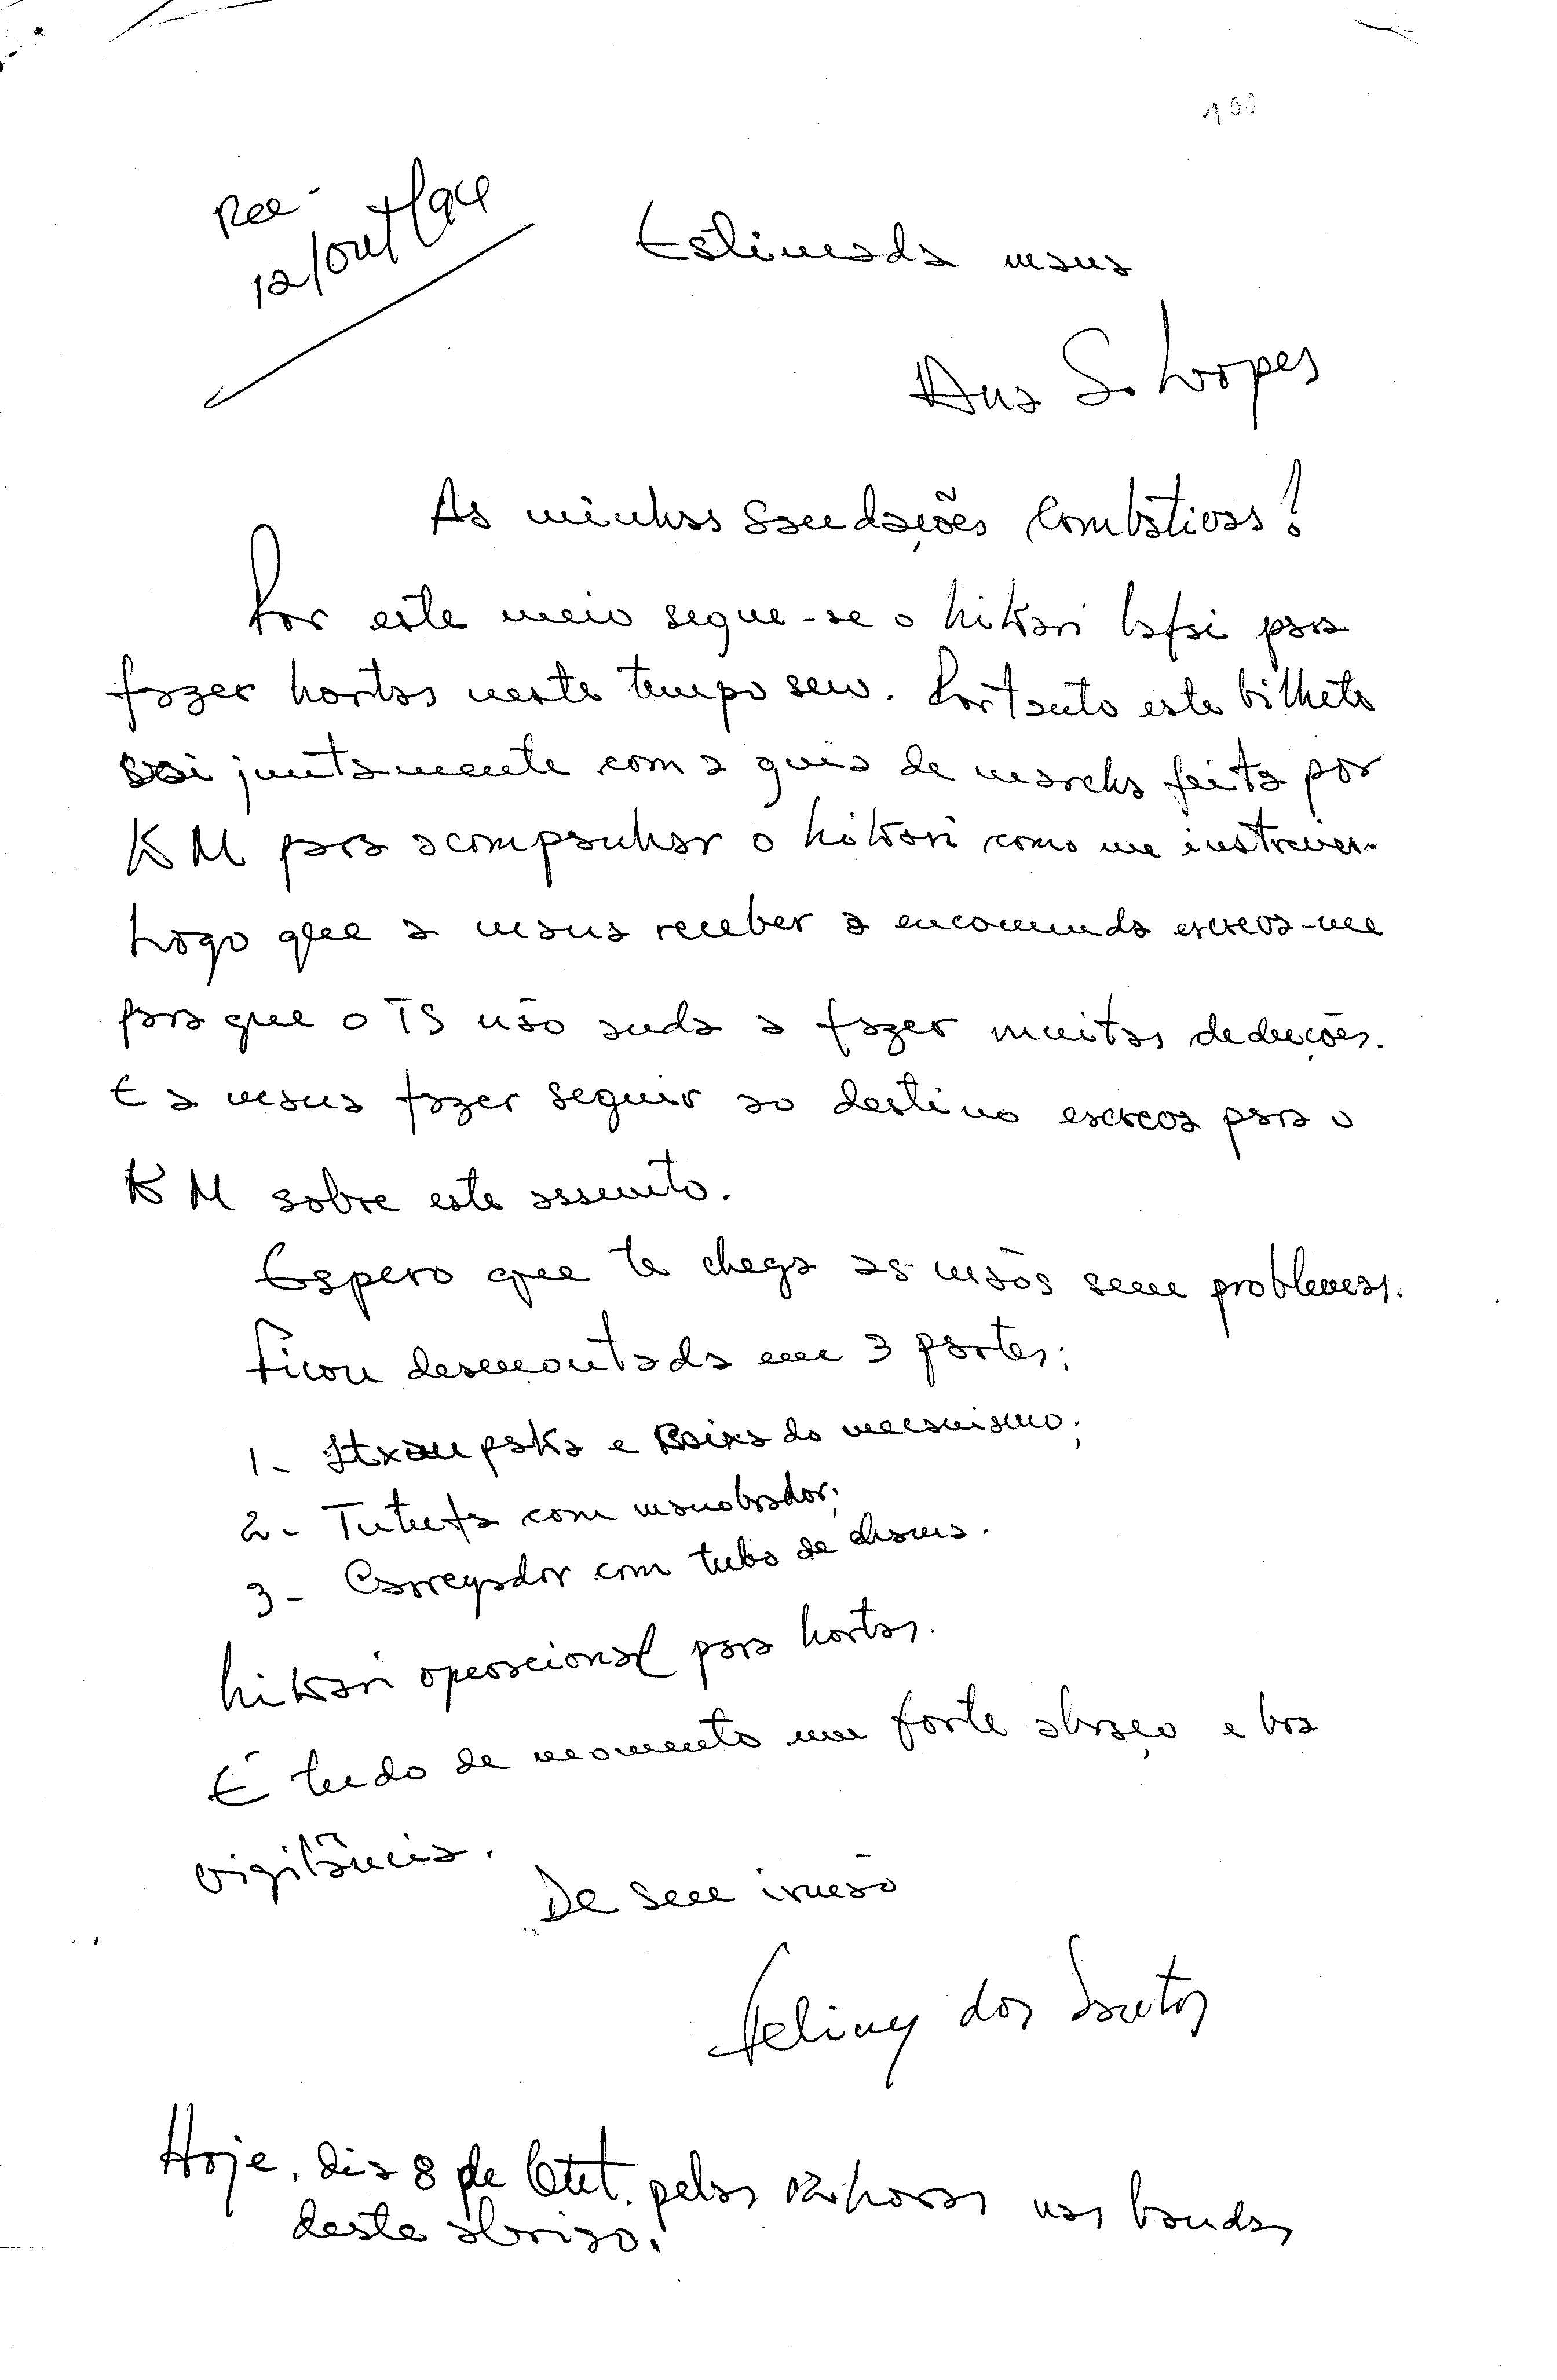 100
Rec-
12/out/94
Estimada mana
Ana S. Lopes
As minhas saudações combativas!
Por este meio segue-se o kitari para
fazer hortas neste tempo seco. Portanto este bilhete
sai juntamente com a guia de marcha feita por
KM para acompanhar o kitari como me instruiu.
Logo que a mana receber a encomenda escreva-me
para que o TS não anda a fazer muitas deduções.
E a mana fazer seguir ao destino escreva para o
KM sobre este assunto.
Espero que te chega as mãos sem problemas.
Ficou desmontada em 3 partes:
1- e Caixa do mecanismo;
2- com manobrador;
3- Carregador com tubo de chama.
operacional para hortas.
É tudo de momento um forte abraço e boa
vigilância.
De seu irmão
dos Santos
Hoje, dia 8 de Out. pelas horas nas bandas
deste abrigo.